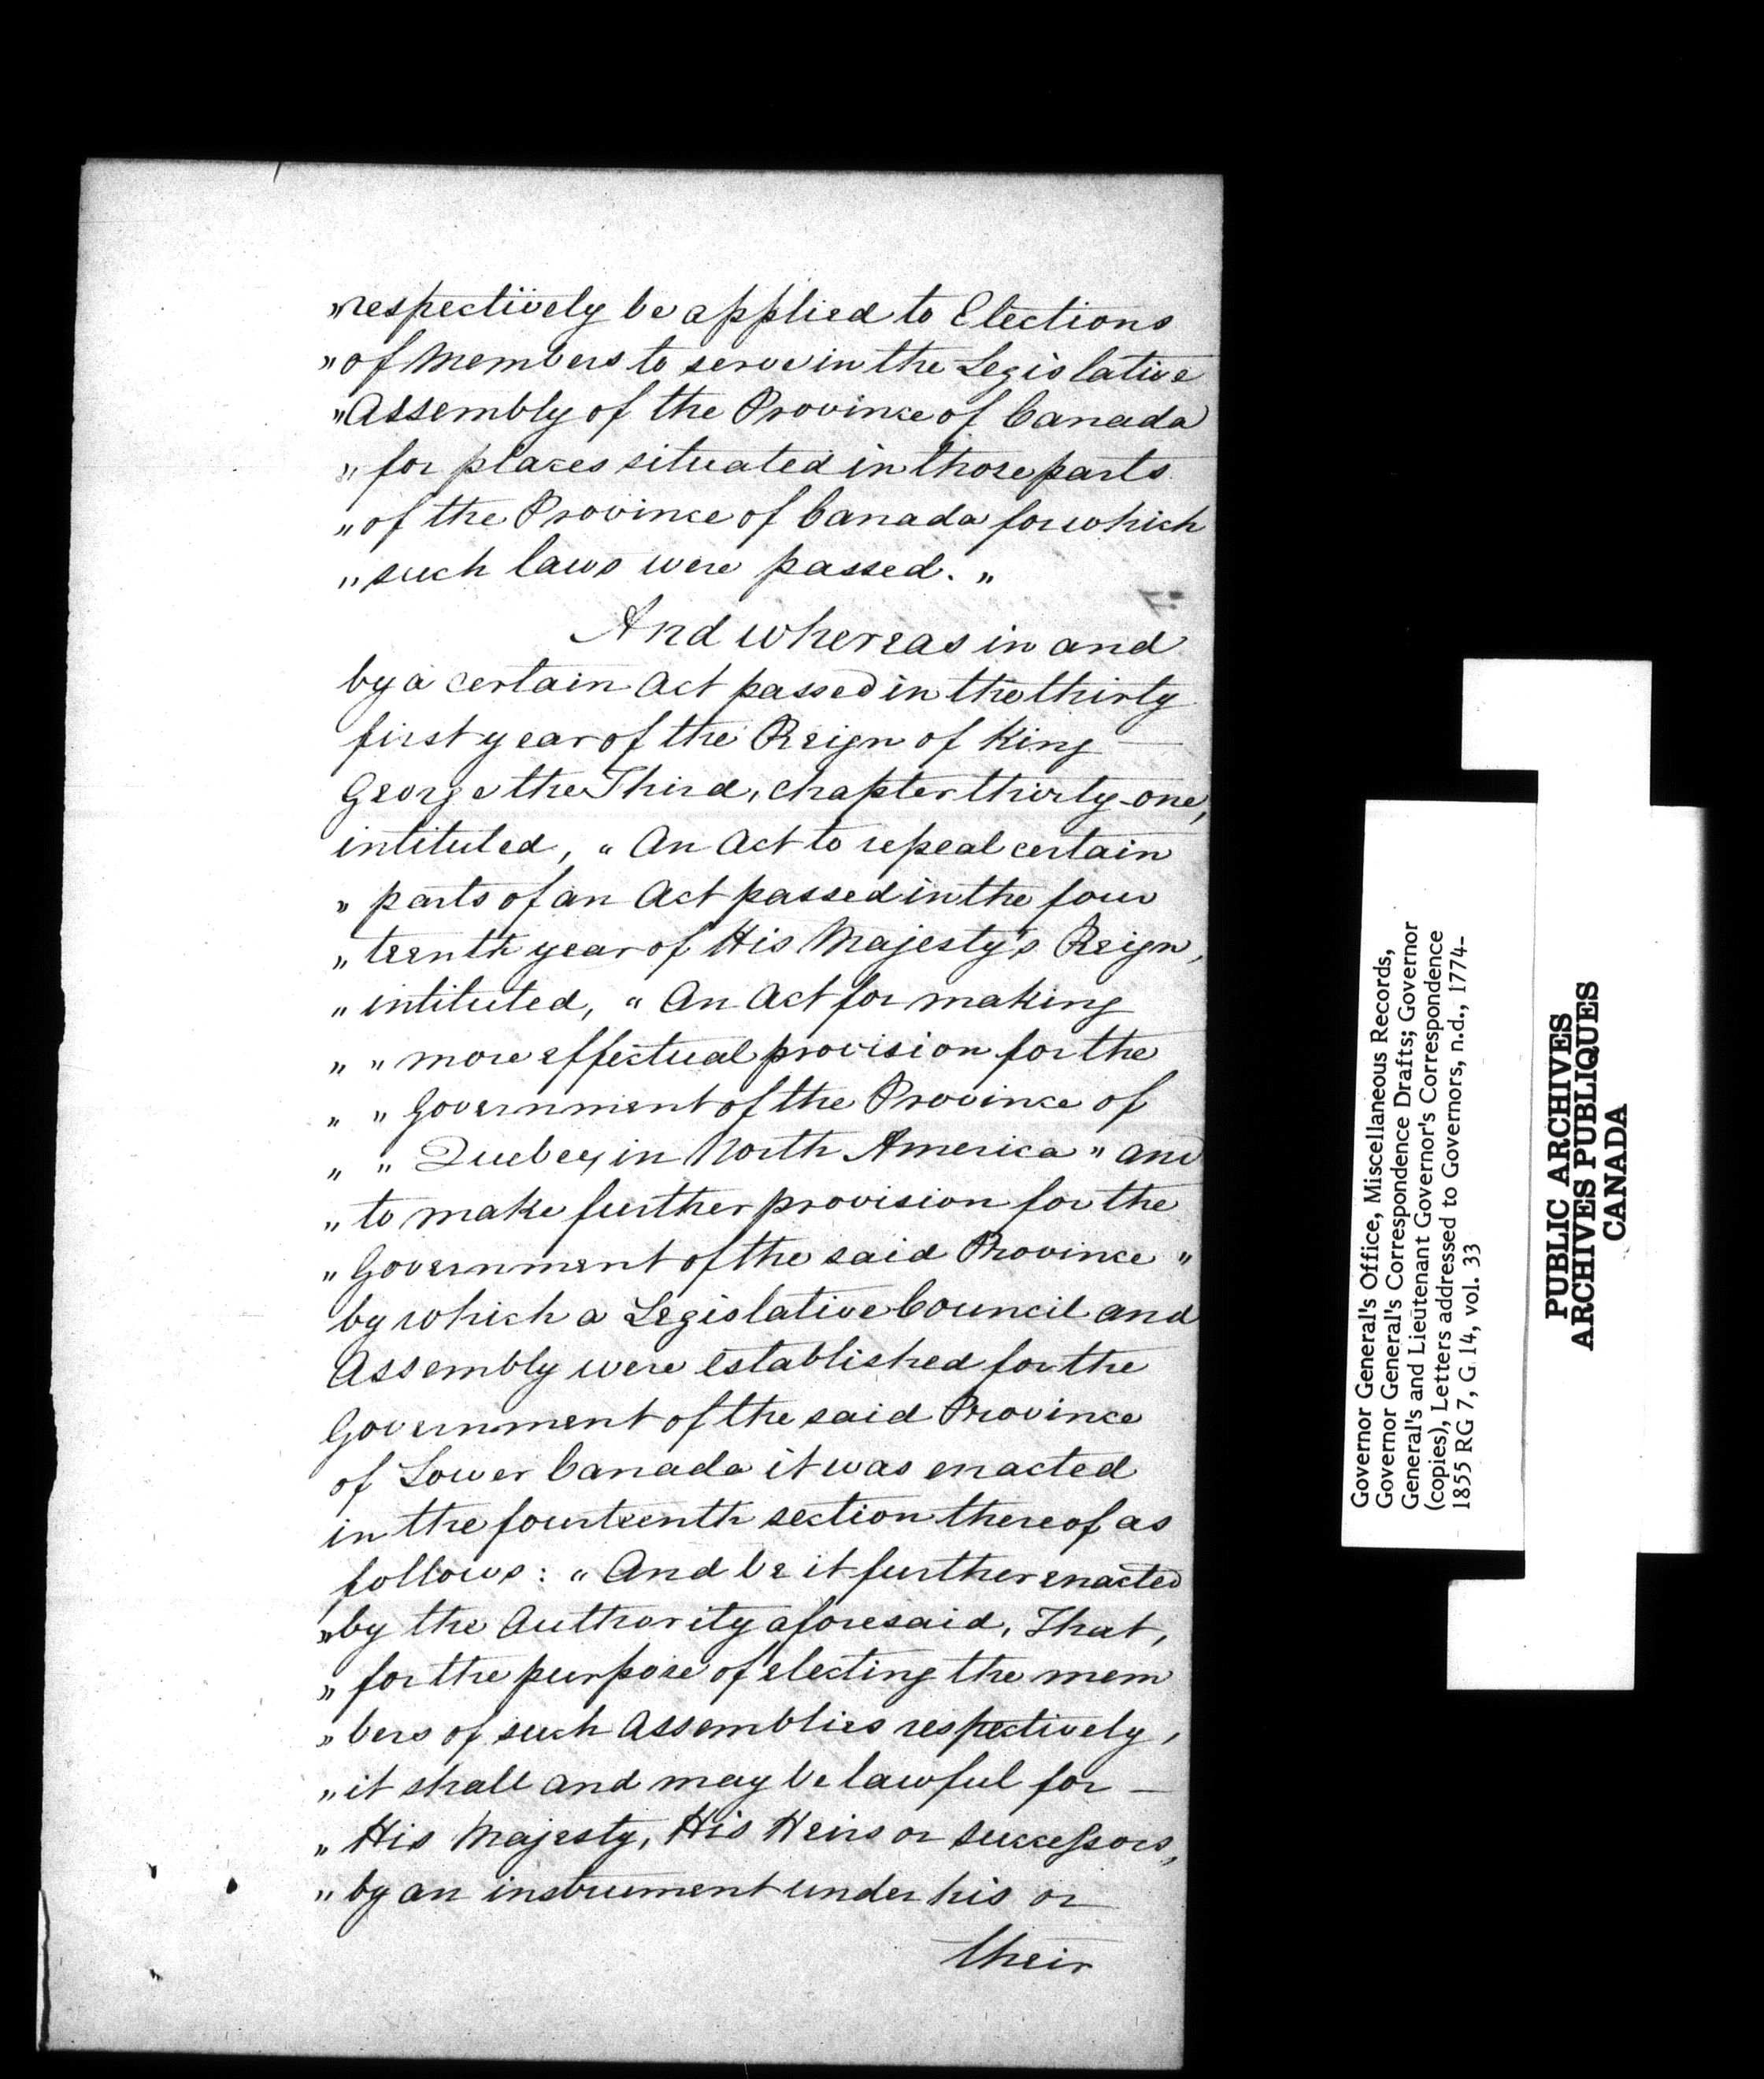 "respectively be applied to Elections
"of Members to serve in the Legislative
"Assembly of the Province of Canada
"for places situated in those parts
"of the Province of Canada for which
"such laws were passed."
And whereas in and
by a certain Act passed in the thirty
first year of the Reign of King —
George the Third, chapter thirty-one,
intituled, "An Act to repeal certain
"parts of an Act passed in the four
"teenth year of His Majesty's Reign,
"intituled, "An Act for making
" "more effectual provision for the
" "Government of the Province of
" "Quebec, in North America" and
"to make further provision for the
"Government of the said Province"
by which a Legislative Council and
Assembly were established for the
Government of the said Province
of Lower Canada it was enacted
in the fourteenth section thereof as
follows: "And be it further enacted
"by the Authority aforesaid, That,
"for the purpose of electing the mem
"bers of such Assemblies respectively,
"it shall and may be lawful for —
"His Majesty, His Heirs or successors,
"by an instrument under his or
their
Governor General's Office, Miscellaneous Records,
Governor General's Correspondence Drafts; Governor
General's and Lieutenant Governor's Correspondence
(copies), Letters addressed to Governors, n.d., 1774-
1855 RG 7, G 14, vol. 33
PUBLIC ARCHIVES
ARCHIVES PUBLIQUES
CANADA